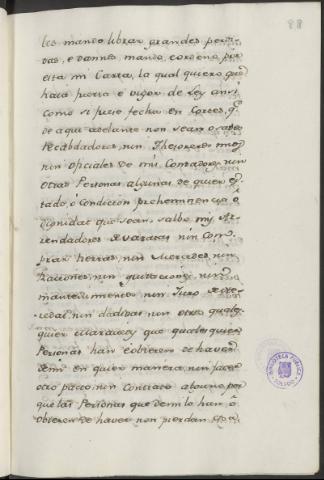 88
les mando librar grandes perdi-
das, e dannos mando, e ordeno por
esta mi Carta, la qual quiero que
haia fuerza e vigor de Ley ansi
como si fuese fecha en Cortes, q.
de aqui adelante non sean osados
recabdadores nin Thesoreros mios
nin oficiales de mis Contadores nin
otras Personas algunas de quier es-
tado, o condicion preheminencia o
dignidat que sean, salbo mis Ar-
rendadores de nin Com-
prar tierras, nin Mercedes nin
Raciones, nin quitaciones, nin
mantenimientos nin Juro de ere-
dat nin dadibas nin otros quales-
quier maravedis que qualesquier
Personas han e obieren de haver
de mi en quier manera, nin facer
otro pacto, nin Contrato alguno por
que las Personas que de mi lo han o
obieren de haver non pierdan cosa
BIBLIOTECA PUBLICA
TOLEDO